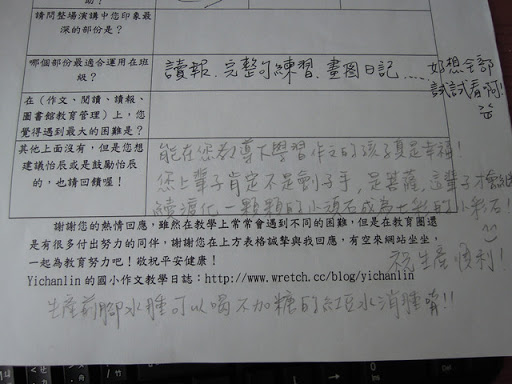 助?
請問整場演講中您印象最
深的部份是?
哪個部份最適合運用在班
級?
讀報、完整句練習、畫圖日記....好想全部
試試看啊!
在(作文、閱讀、讀報、
圖書館教育管理)上,您
覺得遇到最大的困難是?
其他上面沒有,但是您想
建議怡辰或是鼓勵怡辰
的,也請回饋喔!
能在您教導下學習作文的孩子真是幸福!
您上輩子肯定不是劊子手,是菩薩,這輩子才會繼
續渡化一顆顆的小頑石成為七彩的小彩石!
謝謝您的熱情回應,雖然在教學上常常會遇到不同的困難,但是在教育圈還
是有很多付出努力的同伴,謝謝您在上方表格誠摯與我回應,有空來網站坐坐,
一起為教育努力吧!敬祝平安健康!
祝生產順利!
Yichanlin 的國小作文教學日誌:http://www.wretch.cc/blog/yichanlin
生產前腳水腫可以喝不加糖的紅豆水消腫唷!!